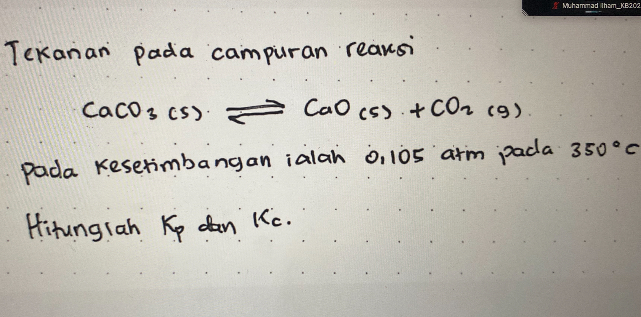 Muhammad Ilham_KB202
Tekanan pada campuran reaksi
CaCO3 (s) ⇌ CaO (s) + CO2 (g)
pada kesetimbangan ialah 0,105 atm pada 350°C
Hitunglah Kp dan Kc.